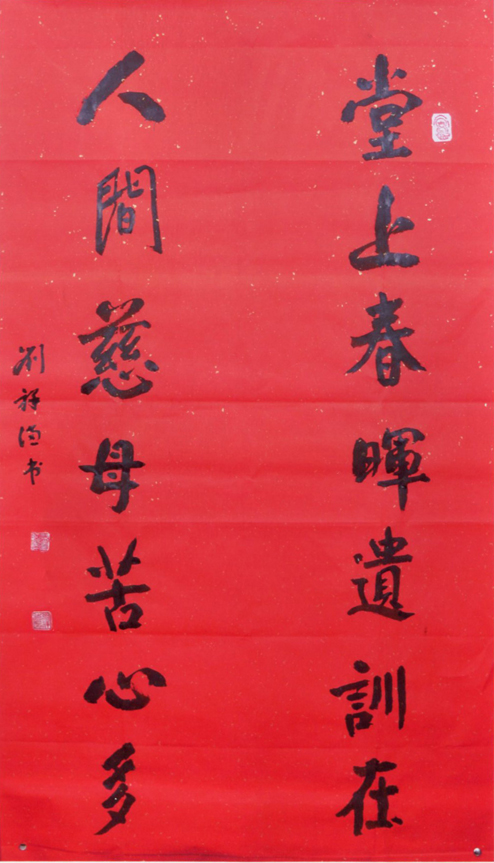 堂上春暉遺訓在
人間慈母苦心多
劉祥德书